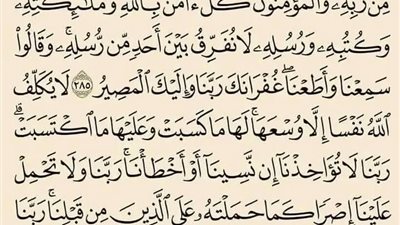 مِن رَّبِّهِۦ وَٱلۡمُؤۡمِنُونَۚ كُلٌّ ءَامَنَ بِٱللَّهِ وَمَلَٰٓئِكَتِهِۦ
وَكُتُبِهِۦ وَرُسُلِهِۦ لَا نُفَرِّقُ بَيۡنَ أَحَدٖ مِّن رُّسُلِهِۦۚ وَقَالُواْ
سَمِعۡنَا وَأَطَعۡنَاۖ غُفۡرَانَكَ رَبَّنَا وَإِلَيۡكَ ٱلۡمَصِيرُ ٢٨٥ لَا يُكَلِّفُ
ٱللَّهُ نَفۡسًا إِلَّا وُسۡعَهَاۚ لَهَا مَا كَسَبَتۡ وَعَلَيۡهَا مَا ٱكۡتَسَبَتۡۗ
رَبَّنَا لَا تُؤَاخِذۡنَآ إِن نَّسِينَآ أَوۡ أَخۡطَأۡنَاۚ رَبَّنَا وَلَا تَحۡمِلۡ
عَلَيۡنَآ إِصۡرٗا كَمَا حَمَلۡتَهُۥ عَلَى ٱلَّذِينَ مِن قَبۡلِنَاۚ رَبَّنَا